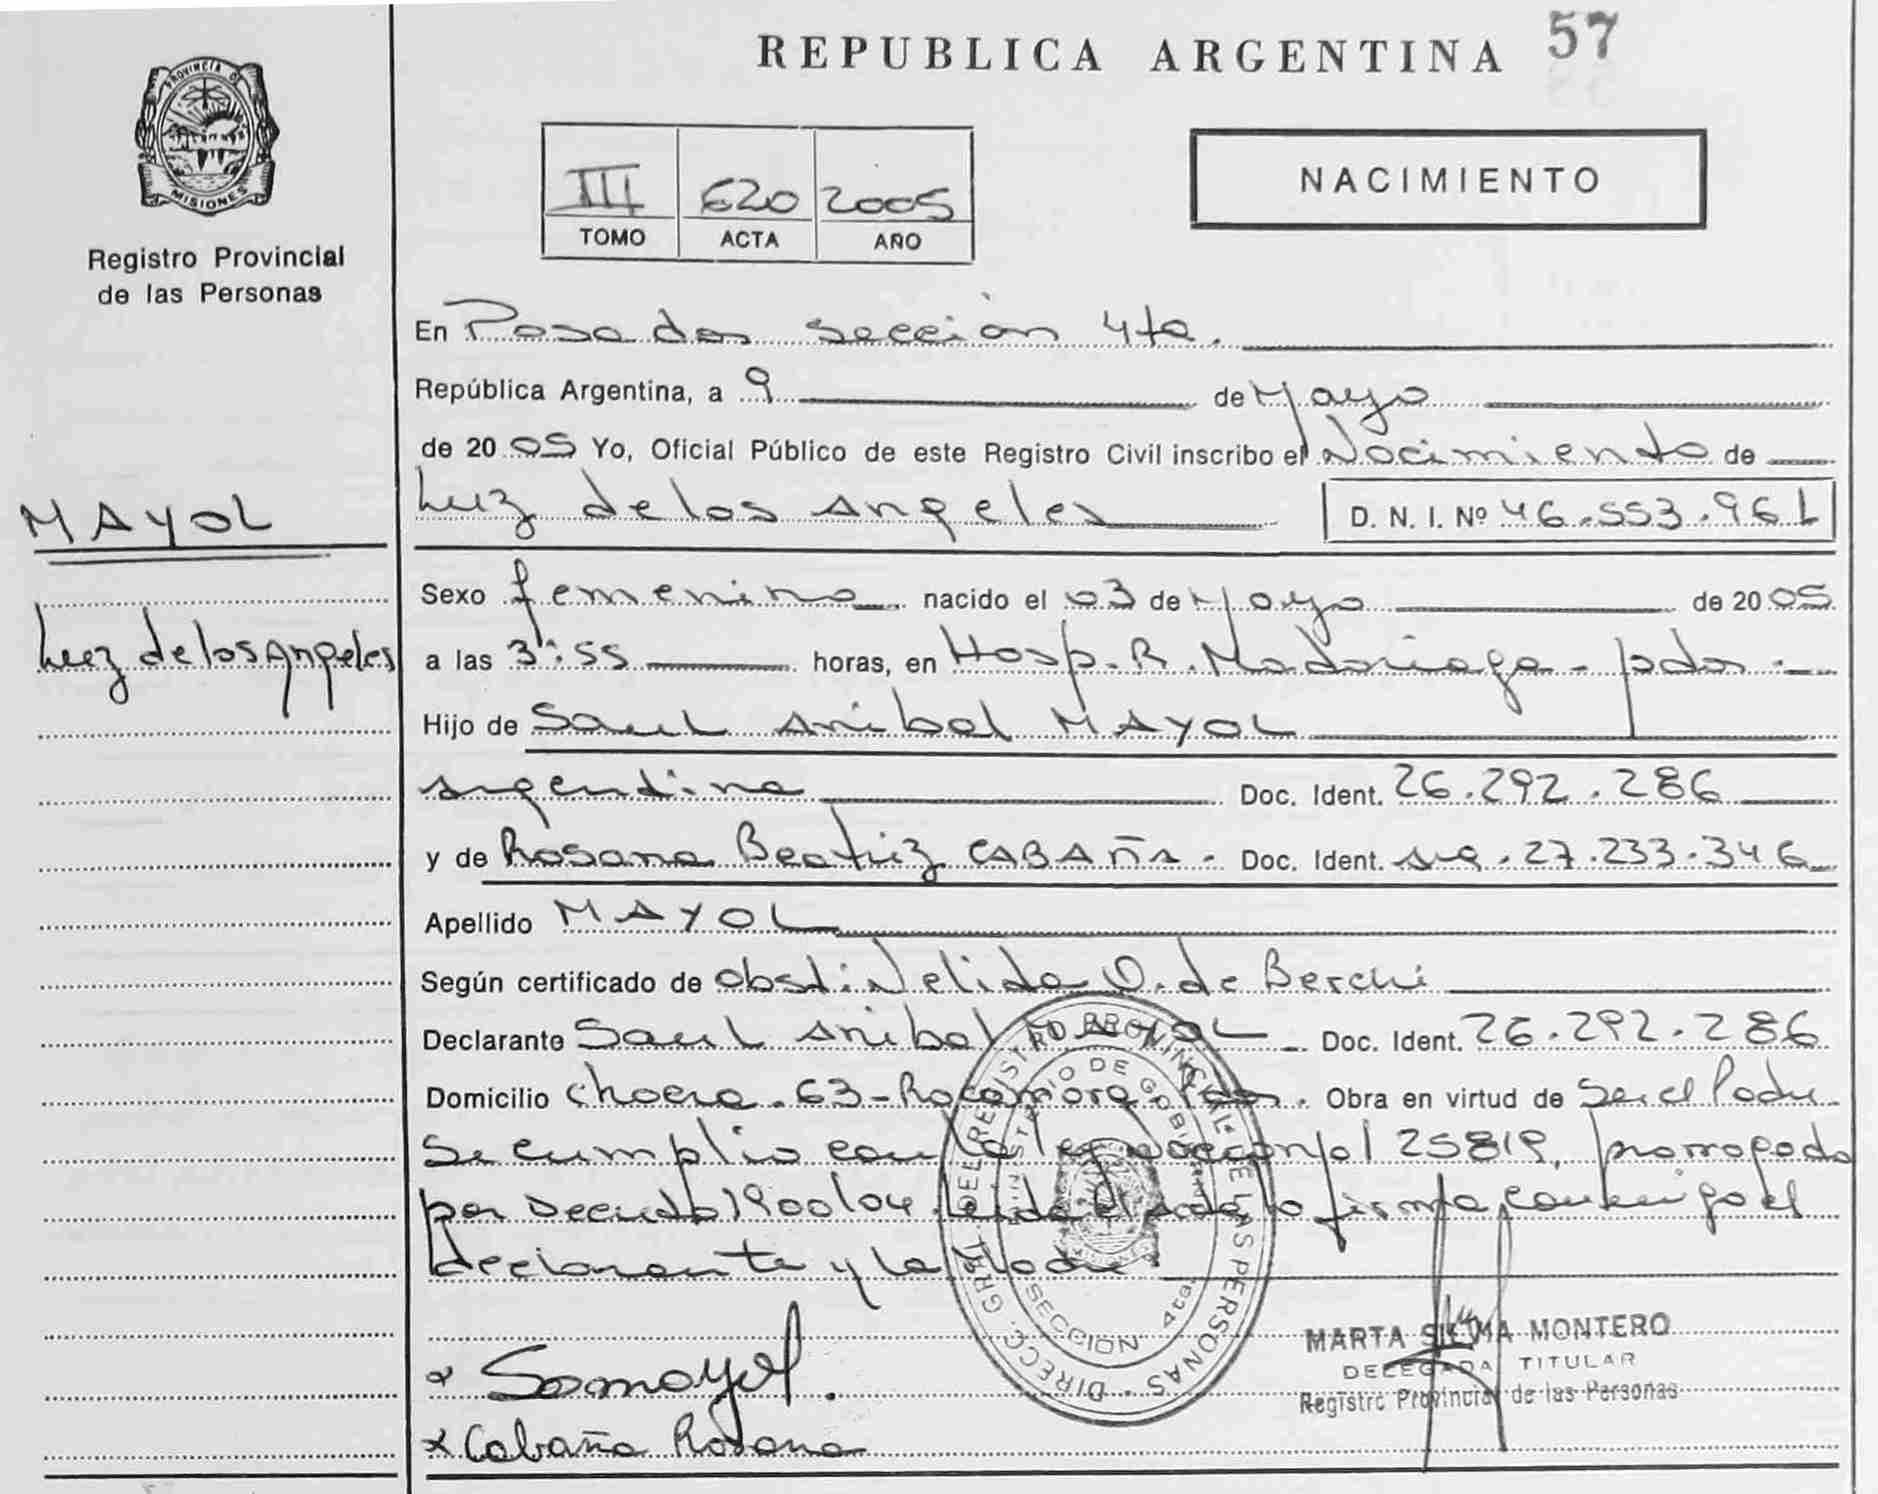 REPUBLICA ARGENTINA 57
PROVINCIA DE
MISIONES
Registro Provincial
de las Personas
III 620 2005
TOMO ACTA AÑO
NACIMIENTO
En Posadas sección 4ta.
República Argentina, a 9 de Mayo
de 2005 Yo, Oficial Público de este Registro Civil inscribo el Nacimiento de
MAYOL
Luz de los Angeles D. N. I. Nº 46.553.961
Sexo femenino nacido el 03 de Mayo de 2005
Luz de los Angeles
a las 3:55 horas, en Hosp. R. Madariaga - pdas.
Hijo de Saul Anibal MAYOL
argentino Doc. Ident. 26.292.286
y de Rosana Beatriz CABAÑA. Doc. Ident. arg. 27.233.346
Apellido MAYOL
Según certificado de obst: Nelida O. de Berchi
Declarante Saul Anibal MAYOL Doc. Ident. 26.292.286
Domicilio Chacra. 63 - Rocamora. Pdas. Obra en virtud de Ser el Padre
Se cumplio con la ley nacional 25819, prorrogada
por Decreto 1900/04. Leida el acta la firma conmigo el
declarante y la Madre
DIRECC. GRAL. DEL REGISTRO PROVINCIAL DE LAS PERSONAS
MINISTERIO DE GOBIERNO
SECCION 4ta.
MARTA SILVIA MONTERO
DELEGADA TITULAR
Registro Provincial de las Personas
x Samayol.
x Cabaña Rosana